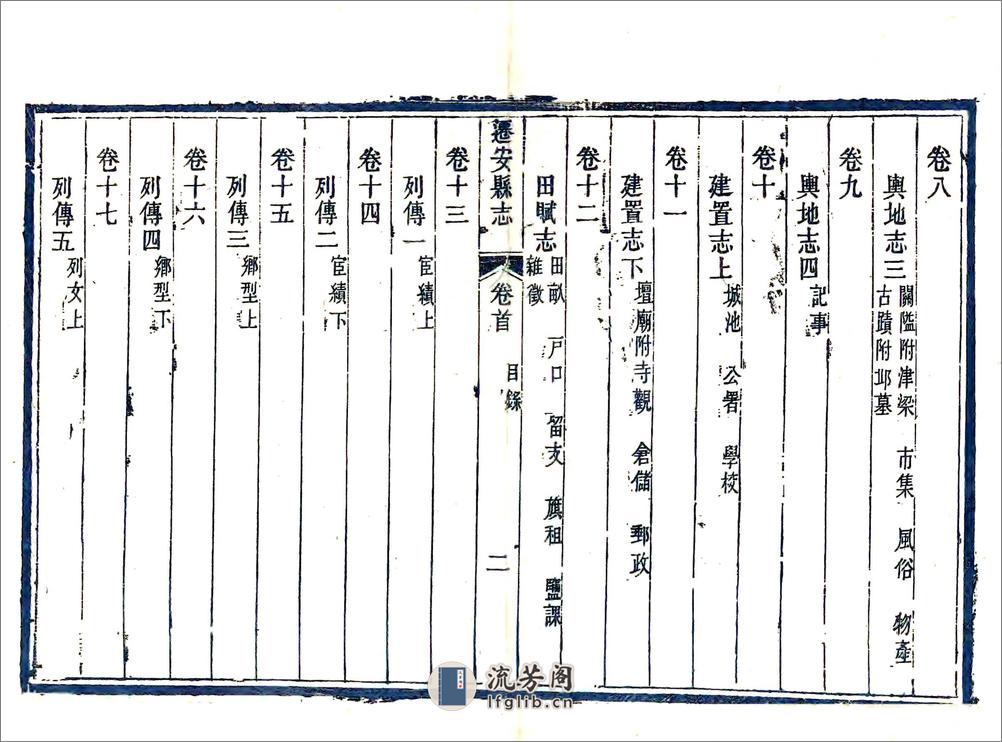 卷八
輿地志三 關隘附津梁 市集 風俗 物產
古蹟附邱墓
卷九
輿地志四 記事
卷十
建置志上 城池 公署 學校
卷十一
建置志下 壇廟附寺觀 倉儲 郵政
卷十二
田賦志 田畝 戶口 留支 旗租 鹽課
雜徵
遷安縣志 卷首 目錄 二
卷十三
列傳一 宦績上
卷十四
列傳二 宦績下
卷十五
列傳三 鄉型上
卷十六
列傳四 鄉型下
卷十七
列傳五 列女上
流芳阁
lfglib.cn